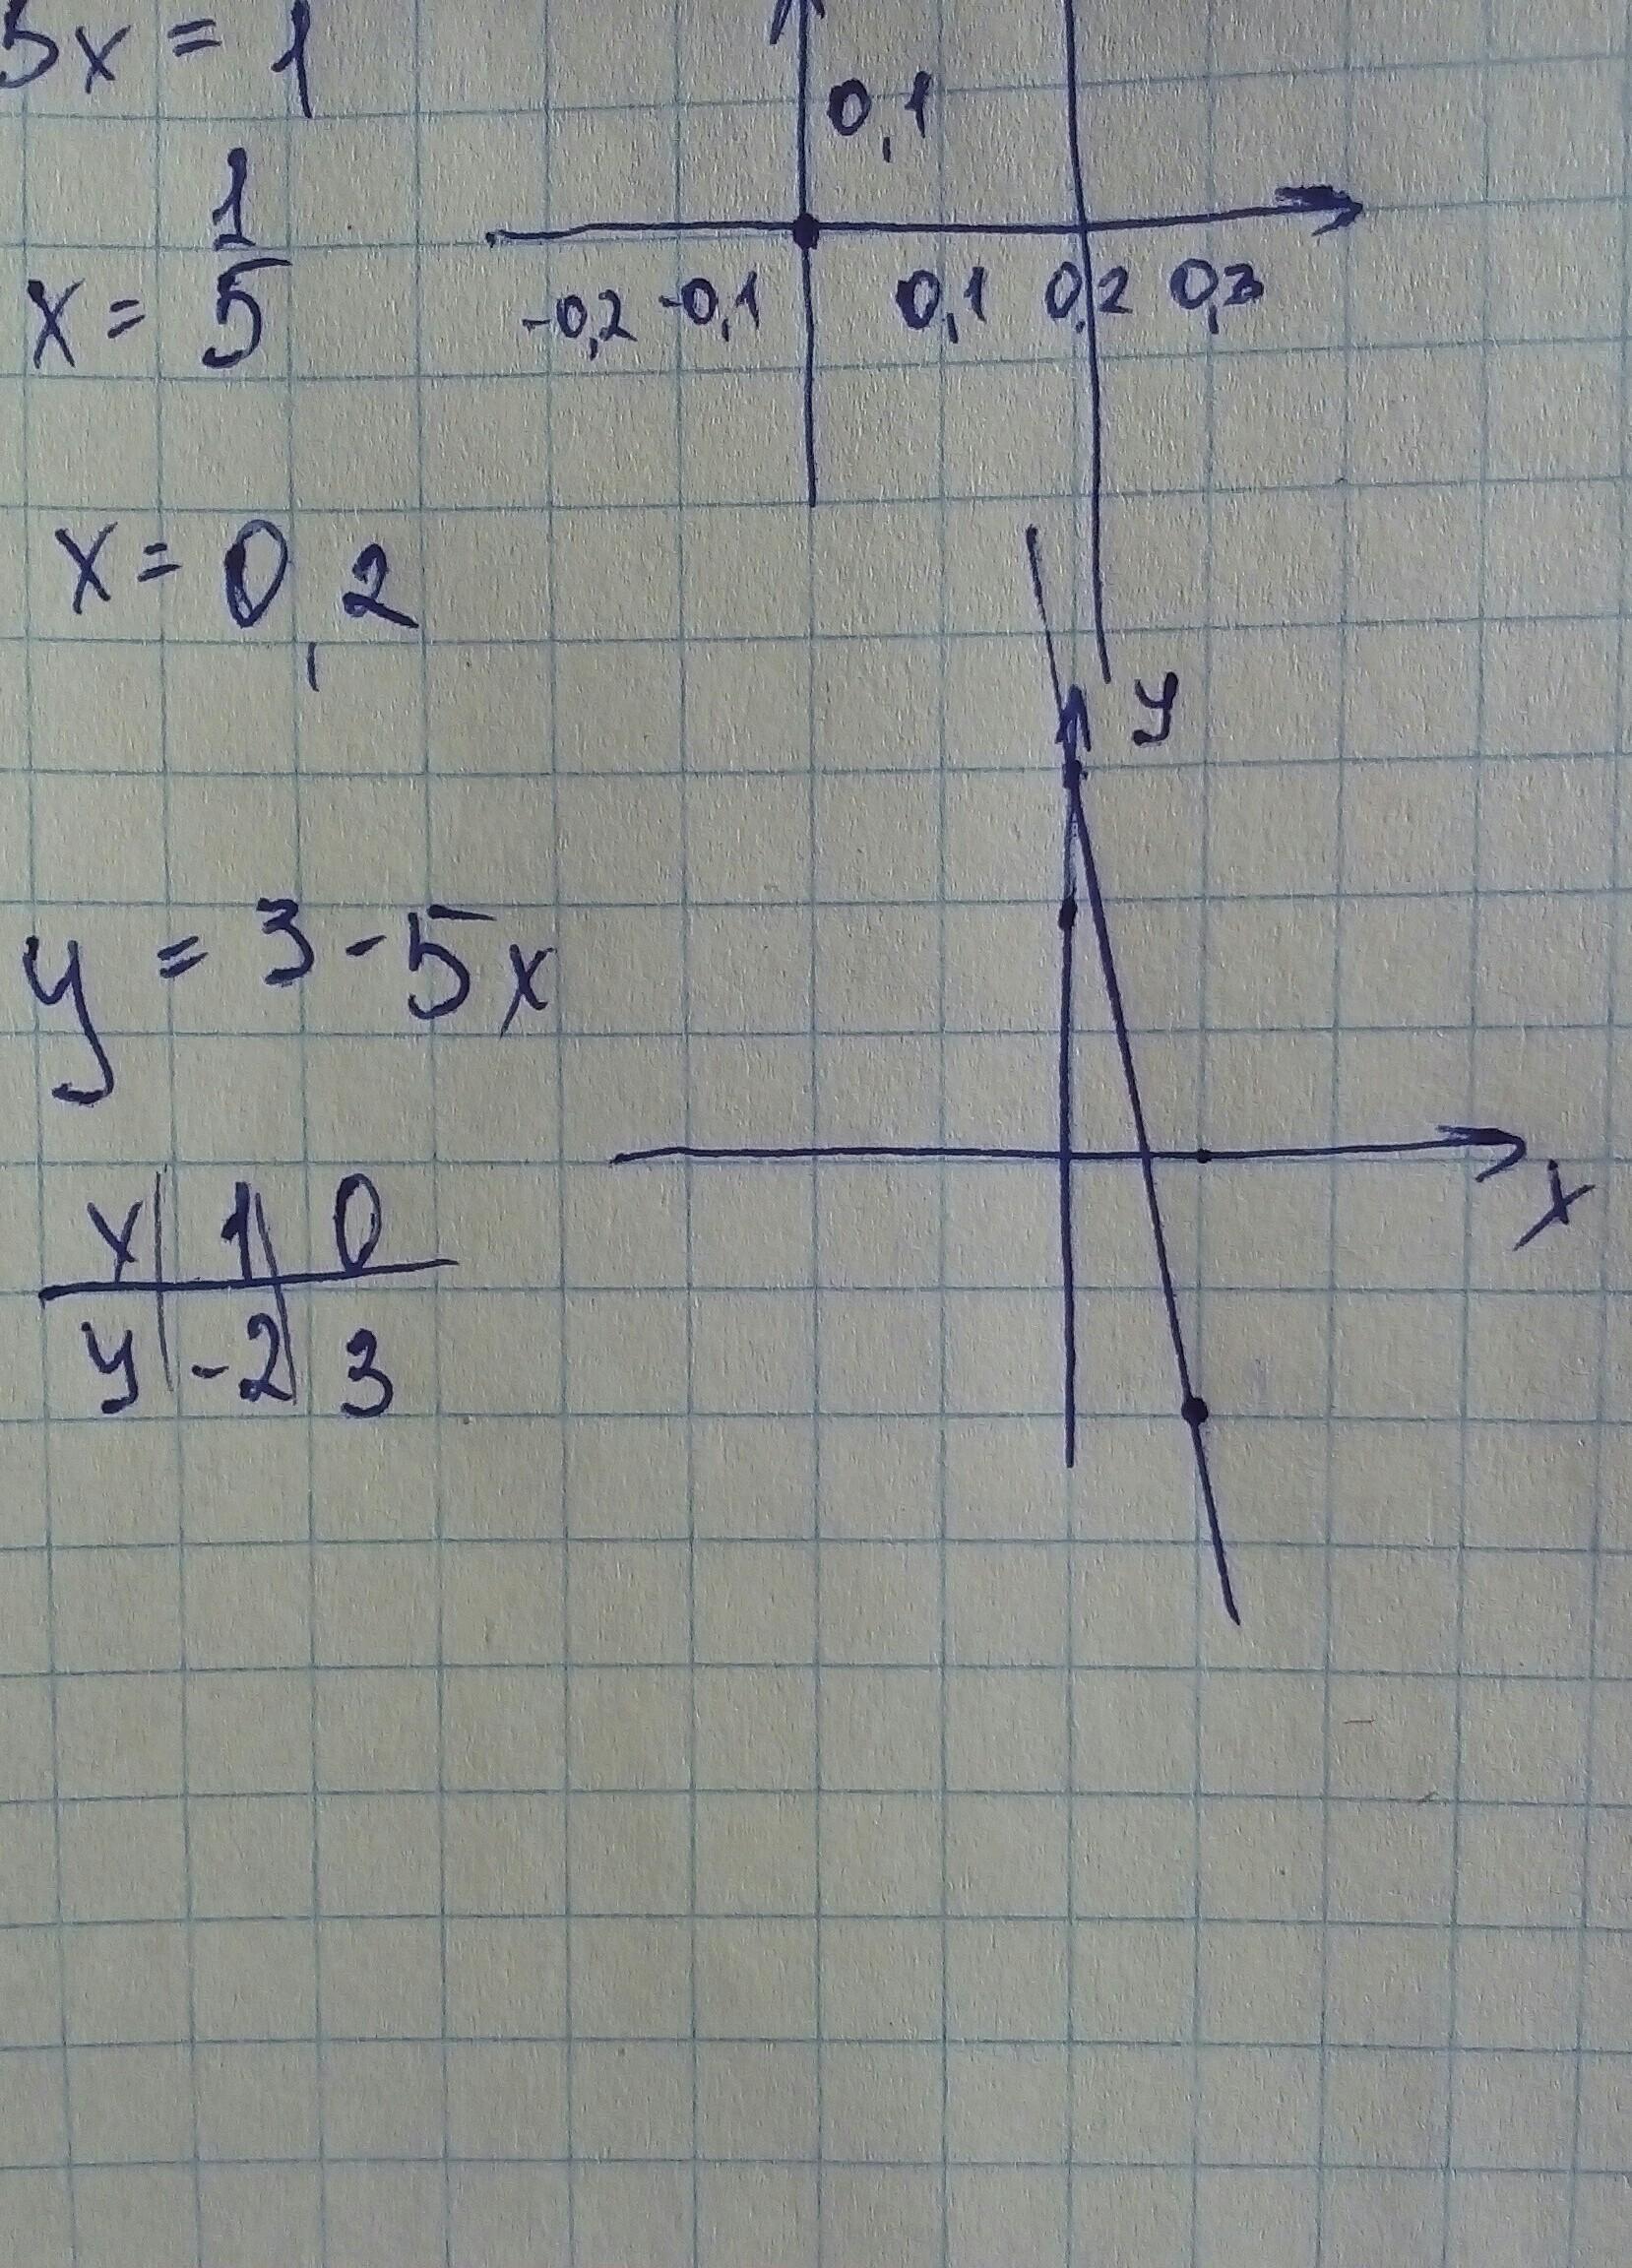 5x = 1
0,1
x = 1/5
-0,2 -0,1 0,1 0,2 0,3
x = 0,2
y
y = 3 - 5x
x
x | 1 | 0
y | -2 | 3